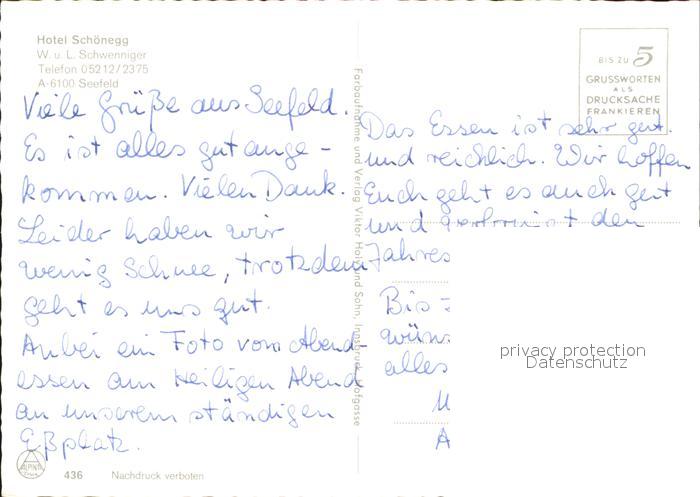 Hotel Schönegg
W. u. L. Schwenniger
Telefon 05212/2375
A-6100 Seefeld
Viele Grüße aus Seefeld.
Es ist alles gut ange-
kommen. Vielen Dank.
Leider haben wir
wenig Schnee, trotzdem
geht es uns gut.
Anbei ein Foto vom Abend-
essen am Heiligen Abend
an unserem ständigen
Eßplatz.
ALPINA
436 Nachdruck verboten
Farbaufnahme und Verlag Viktor und Sohn, Innsbruck, Hofgasse
BIS ZU 5
GRUSSWORTEN
ALS
DRUCKSACHE
FRANKIEREN
Das Essen ist sehr gut.
und reichlich. Wir hoffen
Euch geht es auch gut
und den
Jahres
Bis
wün
alles
U
A
privacy protection
Datenschutz